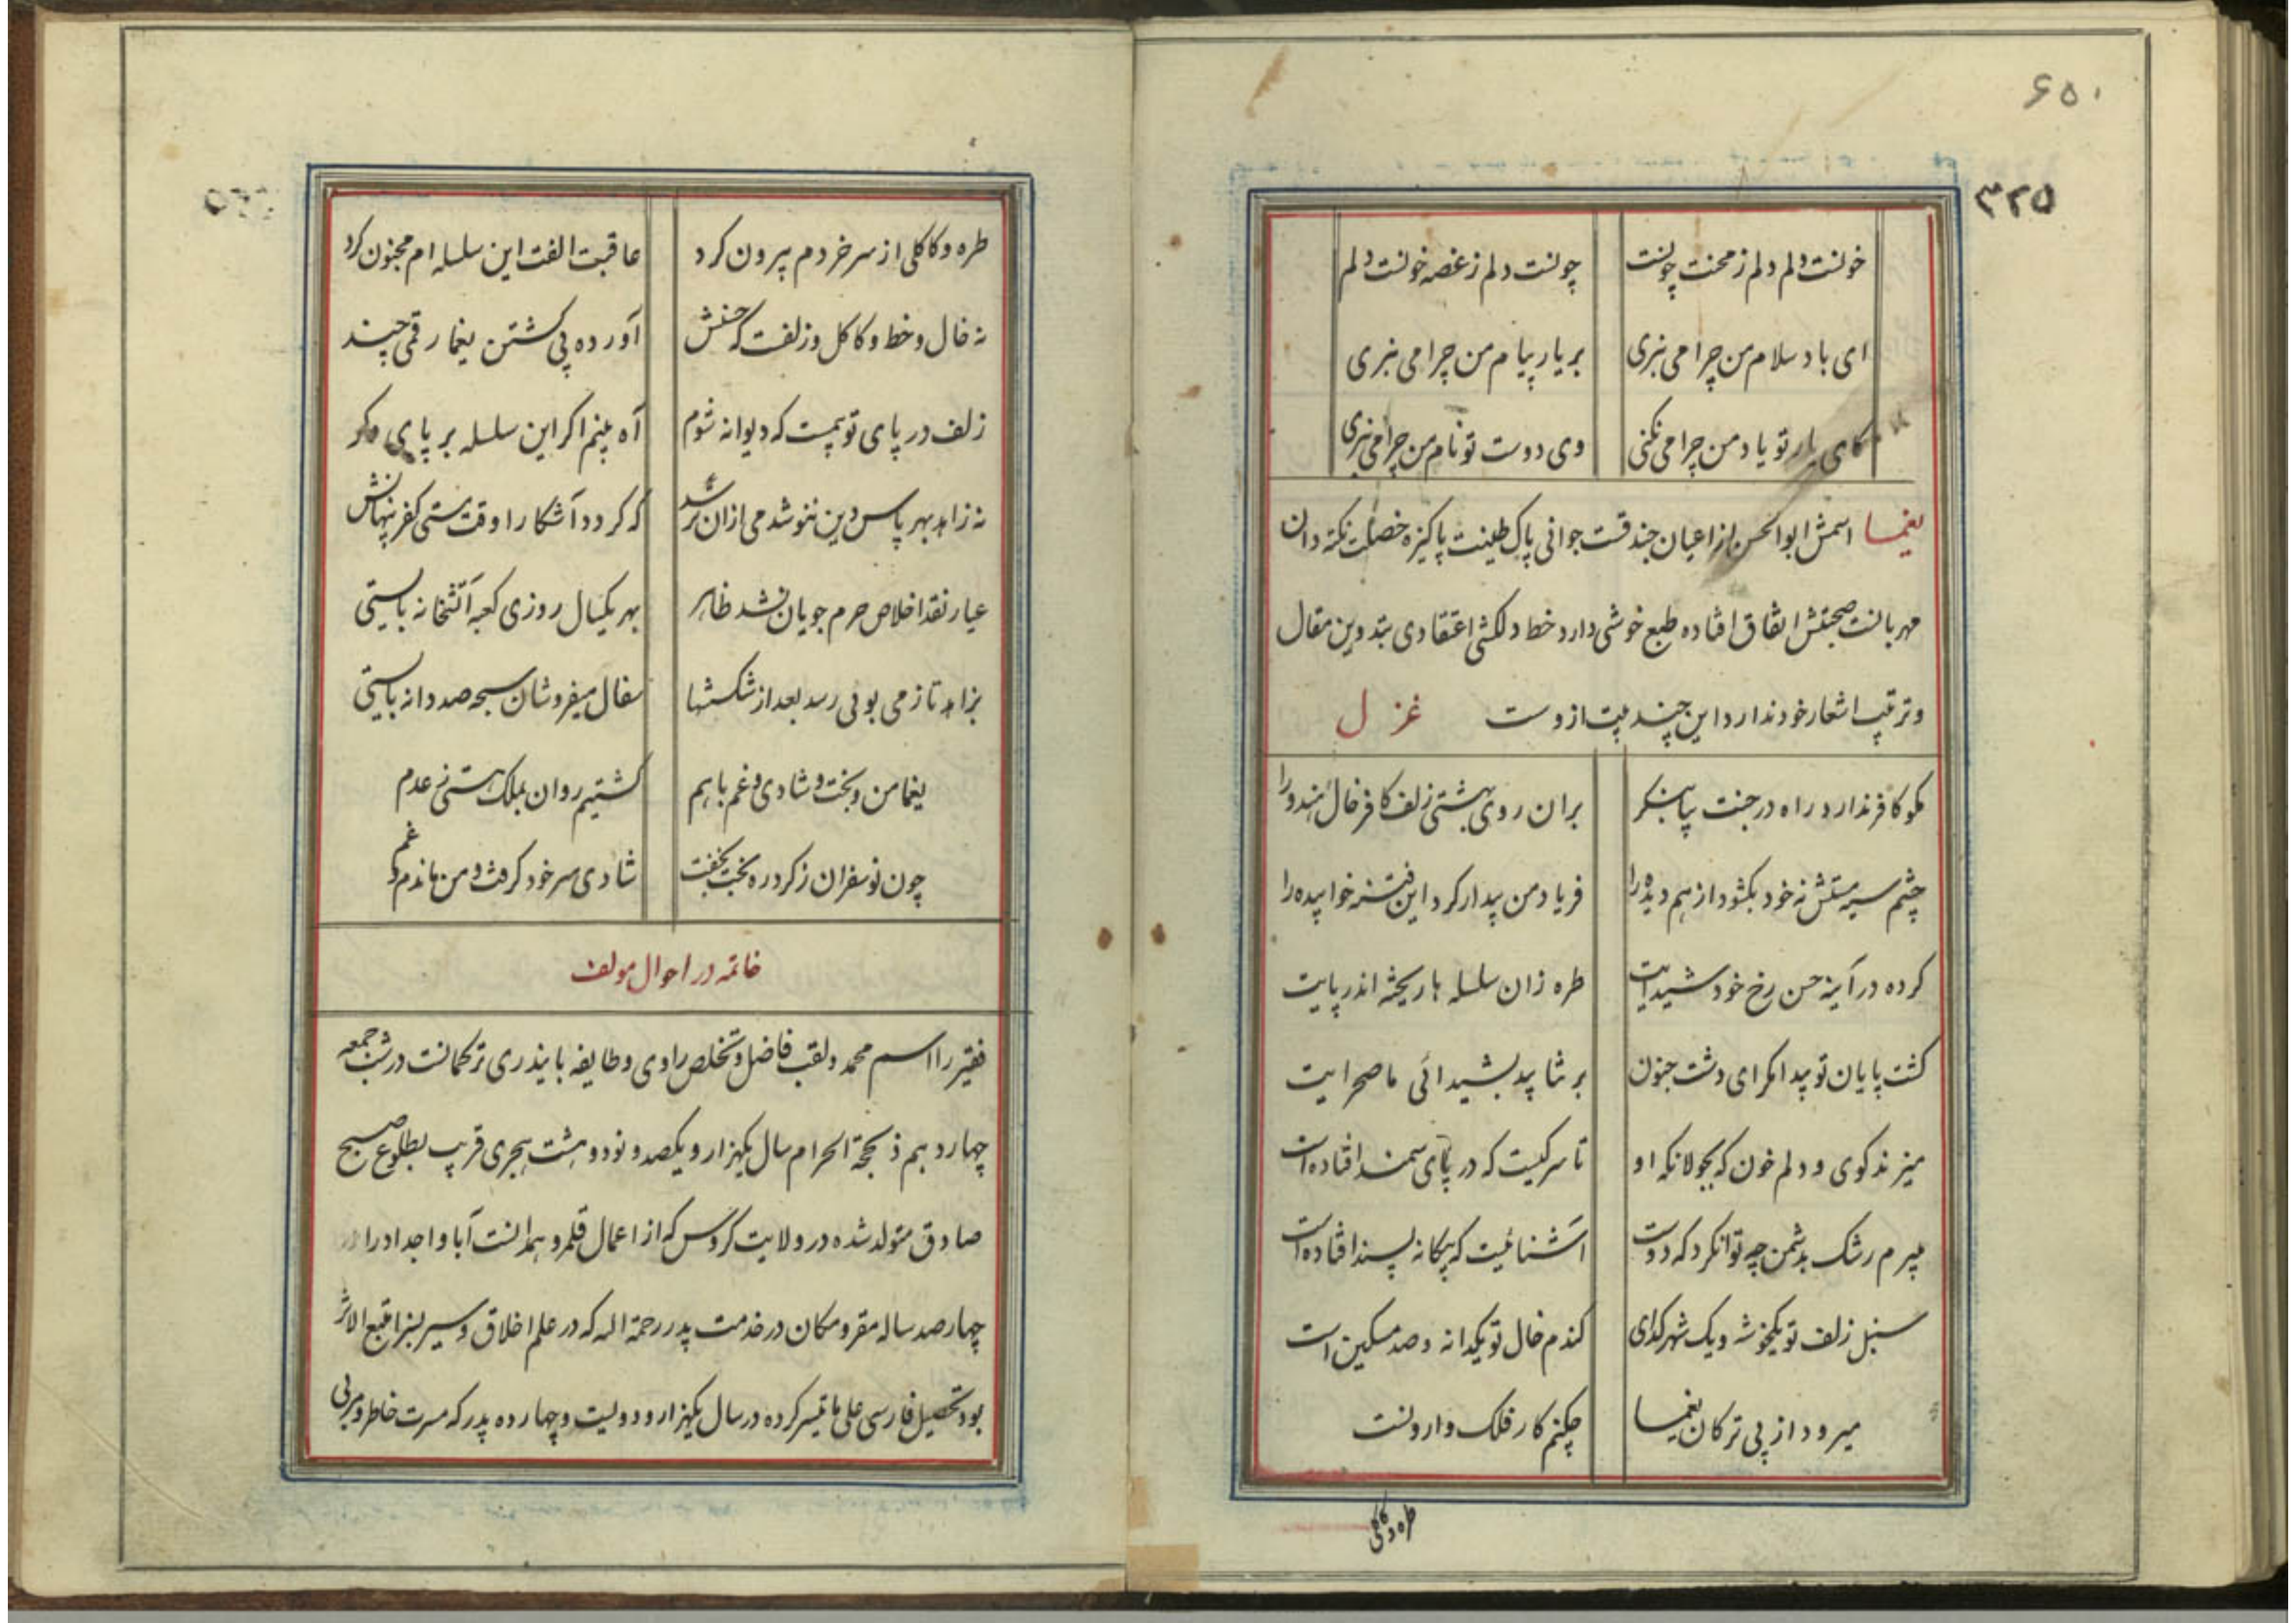 ۶۵۰
۳۲۵
خونست دلم دلم ز محنت چونست چونست دلم ز غصه خونست دلم
ای باد سلام من چرا می نبری بر یار پیام من چرا می نبری
کای یار تو یاد من چرا می نکنی وی دوست تو نام من چرا می نبری
یغما اسمش ابوالحسن از اعیان جندقست جوانی پاک طینت پاکیزه خصلت نکته دان
مهربانست صحبتش اتفاق افتاده طبع خوشی دارد خط دلکشی اعتقادی بتدوین مقال
وترتیب اشعار خود ندارد این چند بیت ازوست غزل
مکو کافر ندارد راه در جنت بیا بنکر بران روی بهشتی زلف کافر خال هندو را
چشم سیه مستش نه خود بکشود از هم دیده را فریاد من بیدار کرد این فتنه خوابیده را
کرده در آینه حسن رخ خود شیدایت طره زان سلسله ها ریخته اندر پایت
کشت پایان تو پیدا مکر ای دشت جنون بر نتابید بشیدائی ما صحرایت
میزند کوی و دلم خون که بجولانکه او تا سر کیست که در پای سمند افتاده است
میرم رشک بدشمن چه توانکرد که دوست آشنائیست که بیکانه پسند افتاده است
سنبل زلف تو یکخوشه و یک شهر کدای کندم خال تو یکدانه و صد مسکین است
میرود از پی ترکان یغما چکنم کار فلک وارونست
طره و کاکلی
طره و کاکلی از سر خردم بیرون کرد عاقبت الفت این سلسله ام مجنون کرد
نه خال و خط و کاکل و زلفت که حسنش آورده پی کشتن یغما رقمی چند
زلف در پای تو بیمست که دیوانه شوم آه بینم اکر این سلسله بر پای دکر
نه زاهد بهر پاس دین ننوشد می ازان ترسد که کردد آشکارا وقت مستی کفر پنهانش
عیار نقد اخلاص حرم جویان نشد ظاهر بهر یکسال روزی کعبه آتشخانه بایستی
بزاهد تا ز می بوئی رسد بعد از شکستنها سفال میفروشان سبحه صد دانه بایستی
یغما من و بخت و شادی و غم باهم کشتیم روان بملک هستی ز عدم
چون نو سفران ز کرد ره بخت بخفت شادی سر خود کرفت و من ماندم و غم
خاتمه در احوال مولف
فقیر را اسم محمد و لقب فاضل و تخلص راوی و طایفه بایندری ترکمانست در شب جمعه
چهاردهم ذیحجة الحرام سال یکهزار و یکصد و نود و هشت هجری قریب بطلوع صبح
صادق متولد شده در ولایت کروس که از اعمال قلمرو همدانست آبا و اجداد را
چهارصد ساله مقر و مکان در خدمت پدر رحمة اله که در علم اخلاق و سیر متبع الاثر
بود تحصیل فارسی علی ما تیسر کرده در سال یکهزار و دویست و چهارده پدر که مسرت خاطر و مربی